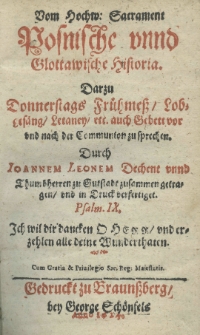 Vom Hochw: Sacrament
Posnische vnnd
Glottawische Historia.
Darzu
Donnerstags Frühmeß/ Lob-
gesäng/ Letaney/ etc. auch Gebett vor
vnd nach der Communion zu sprechen.
Durch
IOANNEM LEONEM Dechent vnnd
Thumbherren zu Gutstadt zusammen getra-
gen/ vnd in Truck verfertiget.
Psalm. IX.
Ich wil dir dancken O HERR/ vnd er-
zehlen alle deine Wunderthaten.
Cum Gratia & Priuilegio Sac. Reg: Maiestatis.
Gedruckt zu Braunßberg/
bey George Schönfels